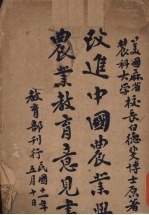 美國麻省
農科大學校長白德斐博士原著
改進中國農業與
農業教育意見書
教育部刊行
民國十一年
五月十七日